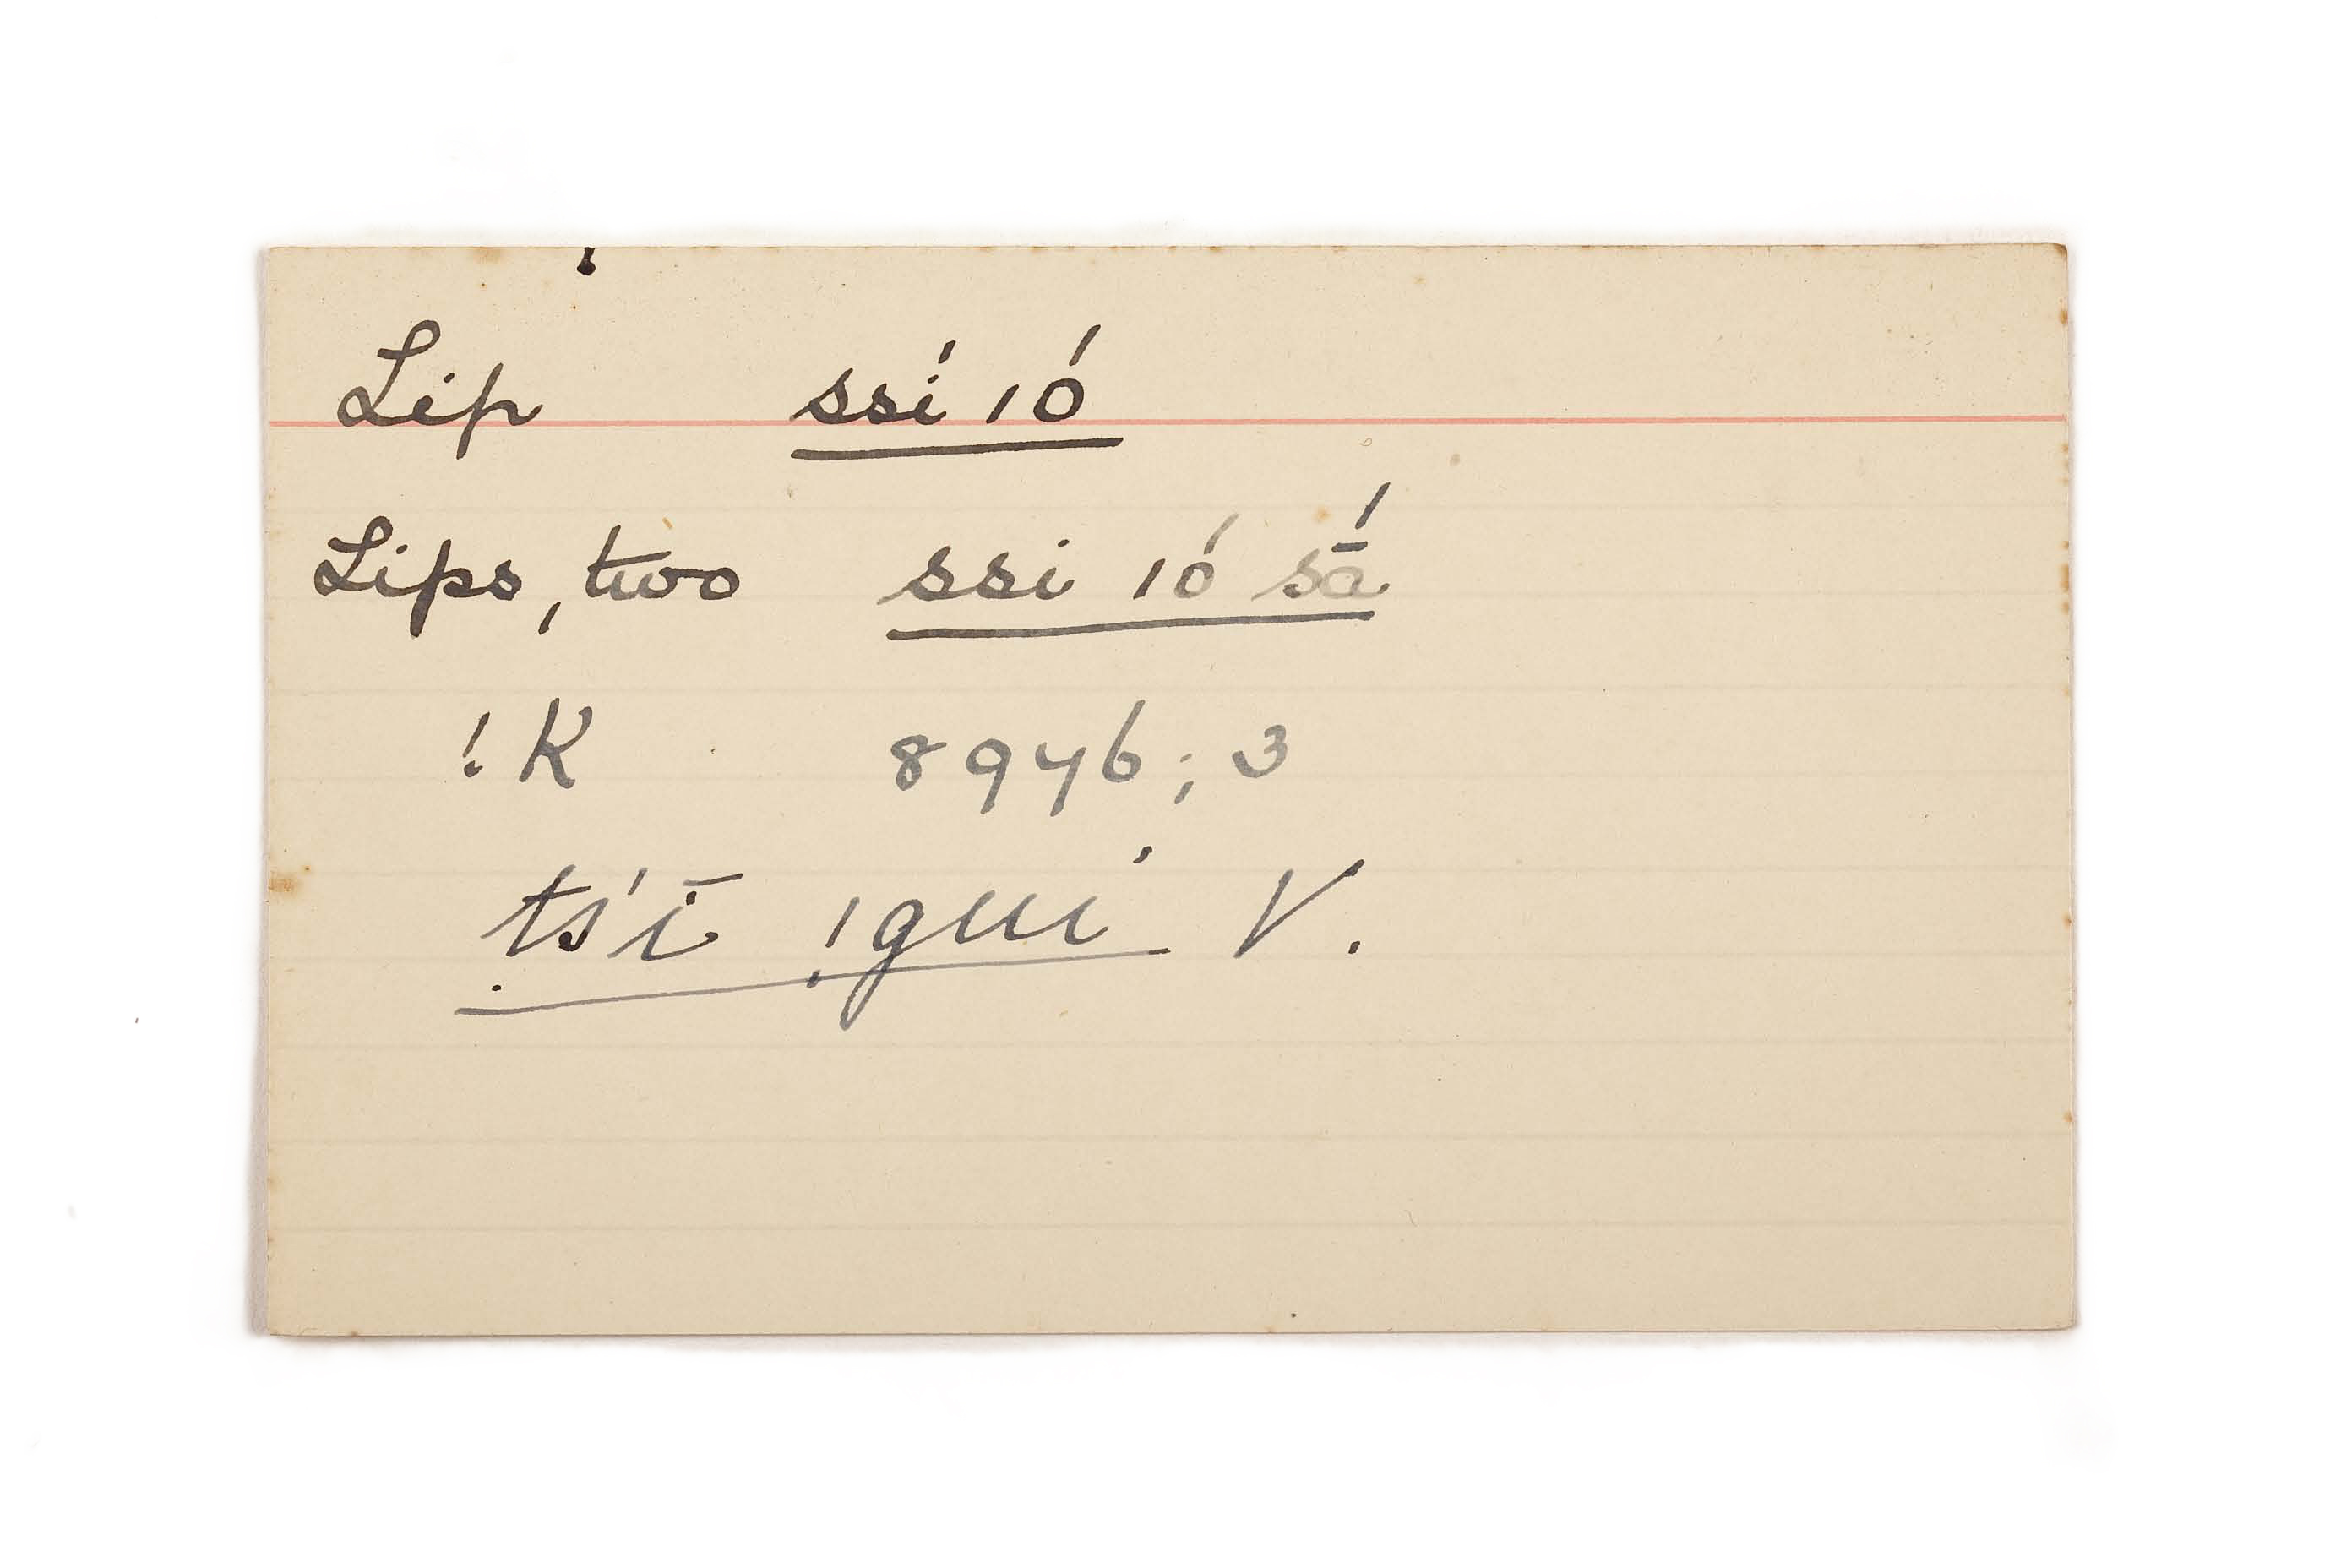 Lip ssí ıó
Lips, two ssi ıó sā́
!K 8946; 3
ts'ī ǃgui V.